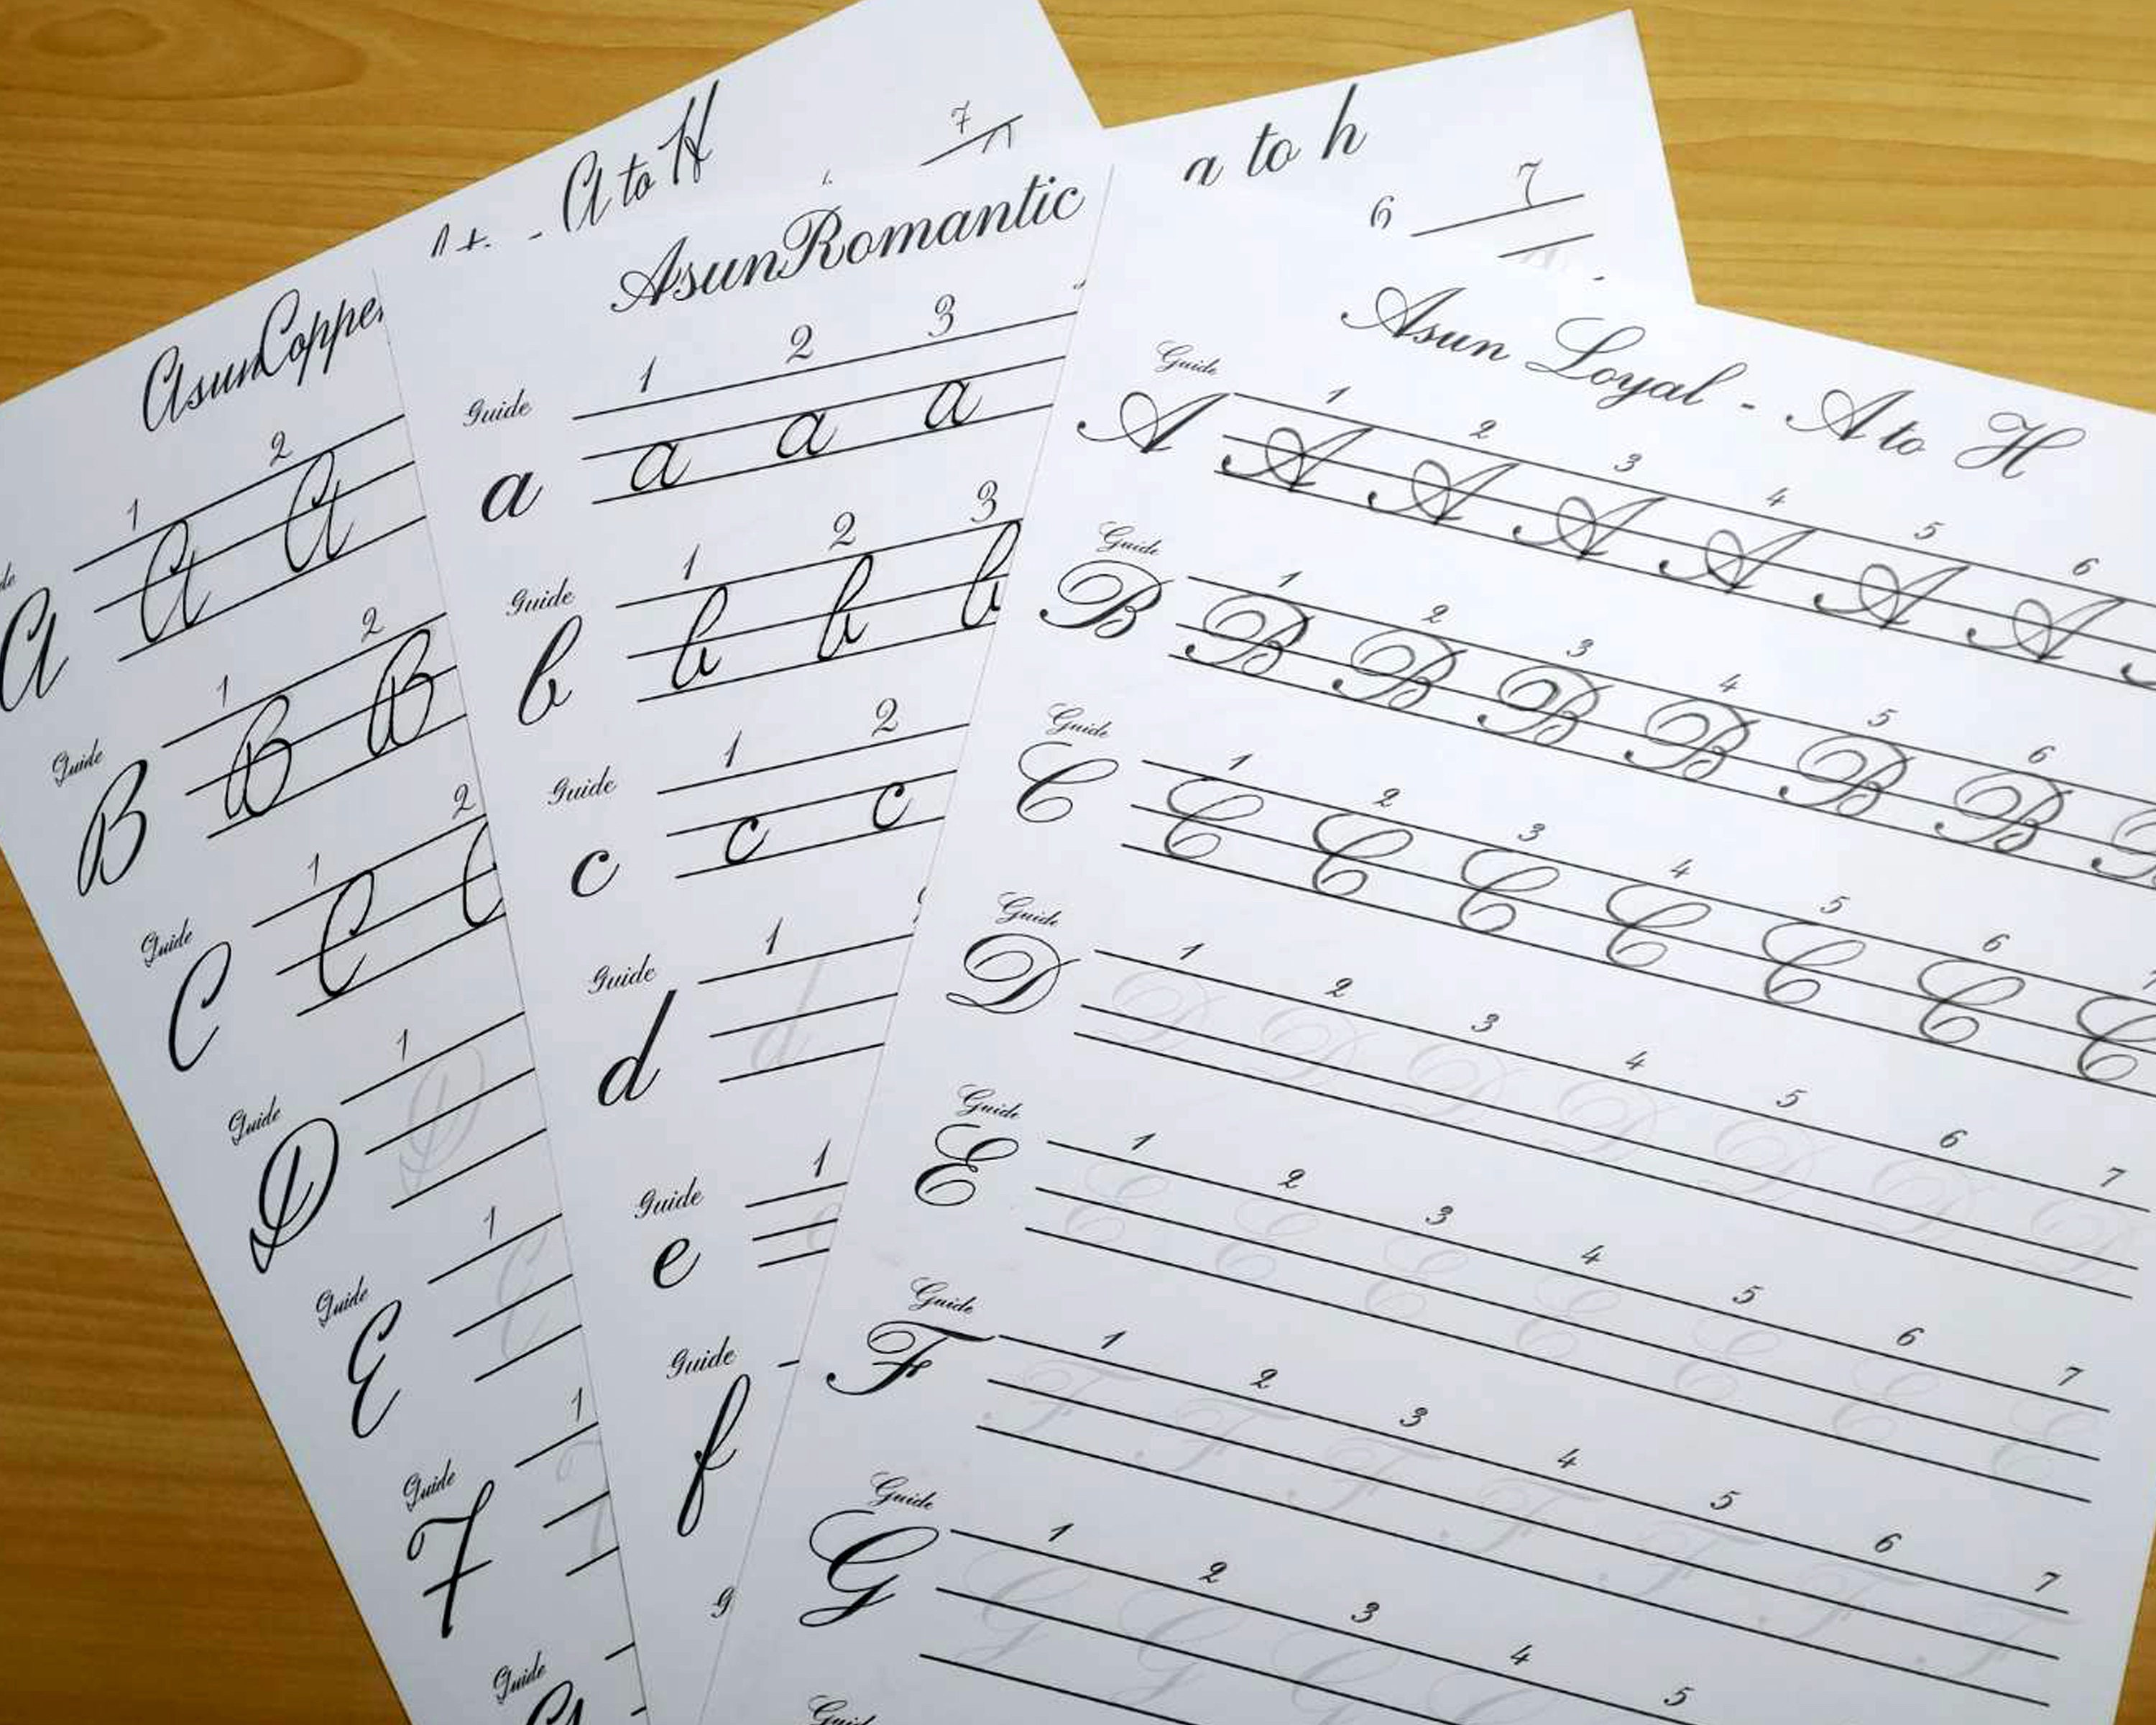 A to H
7
AsunCopper
2
1
A A A
2
1
Guide
B B B
2
1
Guide
C C C
1
Guide
D D
1
Guide
E E
1
Guide
F
Guide
a to h
6 7
AsunRomantic
1 2 3
Guide
a a a a
1 2 3
Guide
b b b b
1 2
Guide
c c c
1
Guide
d d
1
Guide
e
Guide
f
g
Asun Loyal - A to H
Guide
1 2 3 4 5 6
A A A A A A A
Guide
1 2 3 4 5 6
B B B B B B B B
Guide
1 2 3 4 5 6
C C C C C C C C
Guide
1 2 3 4 5 6 7
D D D D D D D D
Guide
1 2 3 4 5 6 7
E E E E E E E E
Guide
1 2 3 4 5 6 7
F F F F F F F F
Guide
1 2 3 4 5
G G G G G